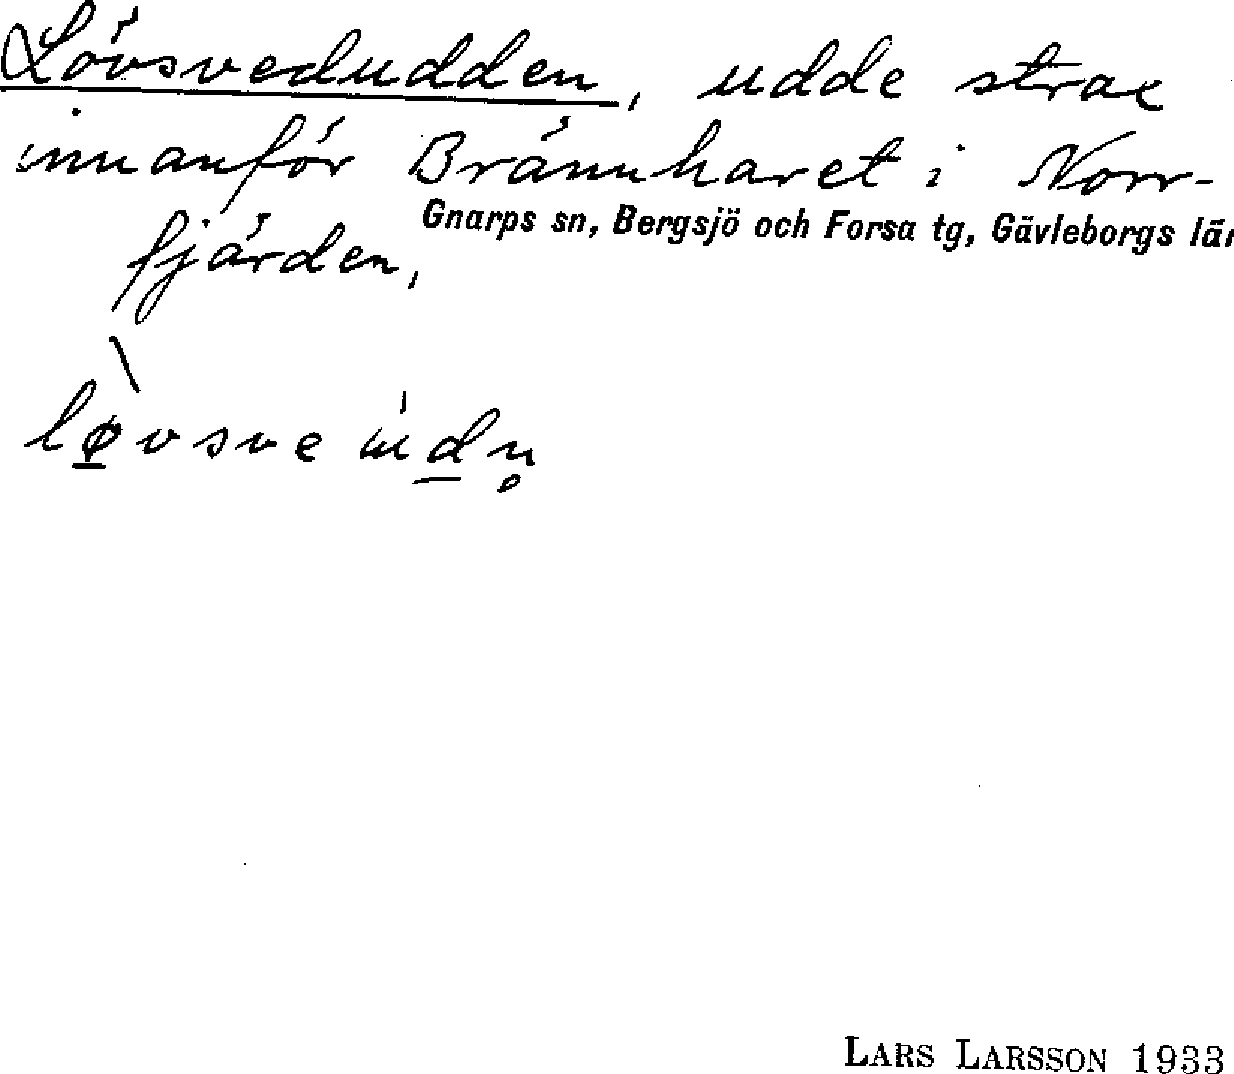 Lövsvedudden, udde strax
innanför Brännharet i Norr-
fjärden,
Gnarps sn, Bergsjö och Forsa tg, Gävleborgs län
LARS LARSSON 1933